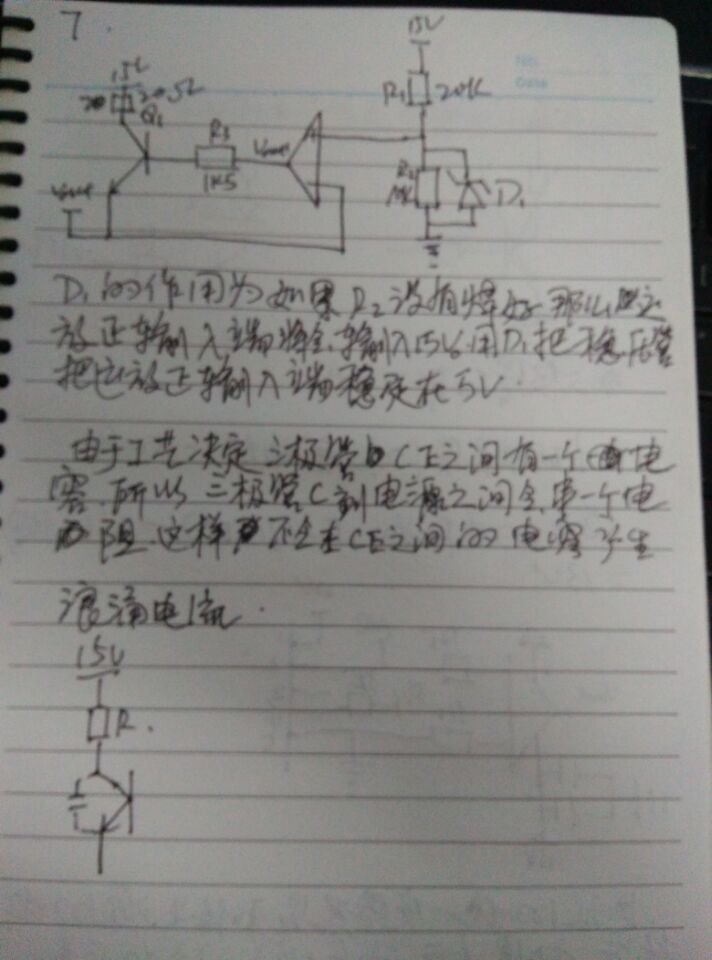 7
15V
15V
R1 20K
20Ω
Q1
R3
1K5
Vout
R2
D1
D1的作用为如果R2没有焊好那么运
放正输入端将会输入15V用D1把稳压管
把运放正输入端稳定在5V.
由于工艺决定三极管CE之间有一个电
容.所以三极管C到电源之间会串一个电
阻.这样不会在CE之间的电容产生
浪涌电流.
15V
R.